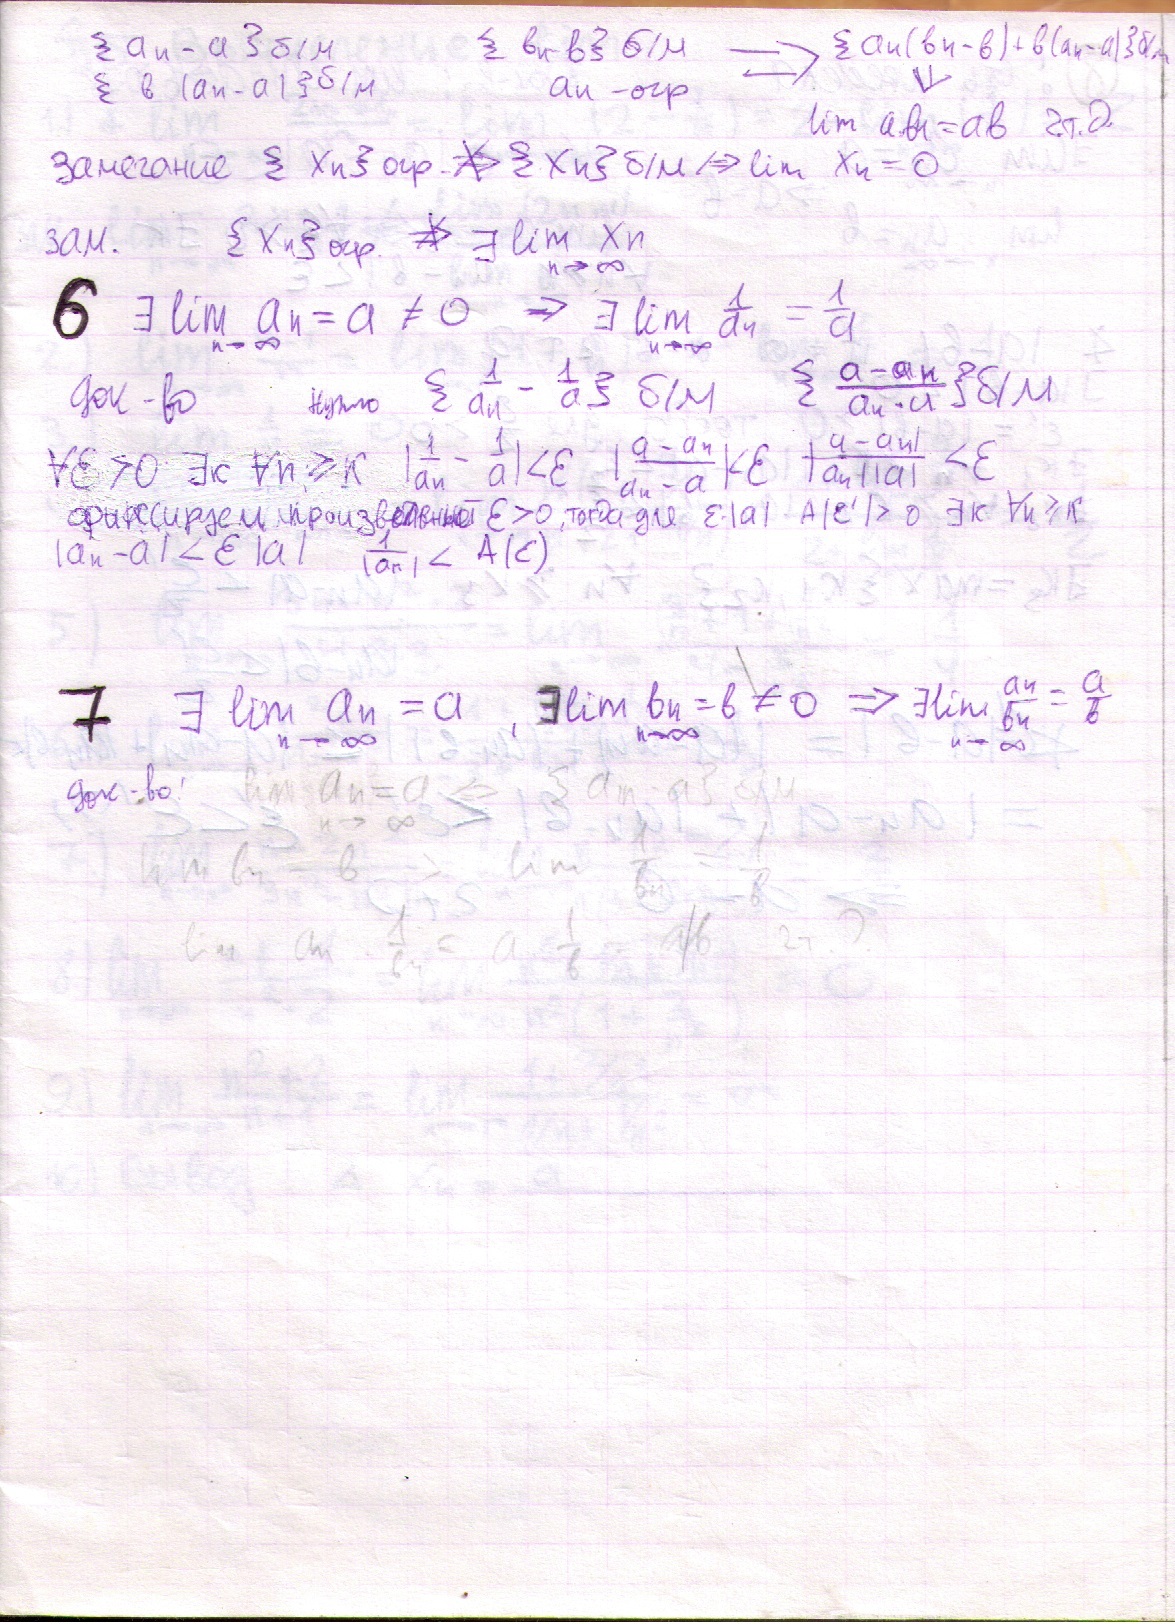 {an - a} б/м {bn - b} б/м ⇒ {an(bn - b) + b(an - a)} б/м
{b(an - a)} б/м an - огр ⇓
lim anbn = ab ч.т.д.
Замечание {Xn} огр. ⇏ {Xn} б/м ⇒ lim Xn = 0
зам. {Xn} огр. ⇏ ∃ lim Xn n→∞
6 ∃ lim an = a ≠ 0 n→∞ ⇒ ∃ lim 1/an = 1/a n→∞
Док-во нужно {1/an - 1/a} б/м {(a - an)/(an·a)} б/м
∀ε > 0 ∃k ∀n ≥ k |1/an - 1/a| < ε |(a - an)/(an - a)| < ε |a - an|/(|an||a|) < ε
фиксируем произвольный ε > 0, тогда для ε·|a| A(ε) > 0 ∃k ∀n ≥ k
|an - a| < ε|a| 1/|an| < A(ε)
7 ∃ lim an = a n→∞, ∃ lim bn = b ≠ 0 n→∞ ⇒ ∃ lim an/bn = a/b n→∞
док-во: lim an = a n→∞ ⇔ {an - a} б/м
lim bn = b ⇒ lim 1/bn = 1/b
lim an · 1/bn = a · 1/b = a/b ч.т.д.